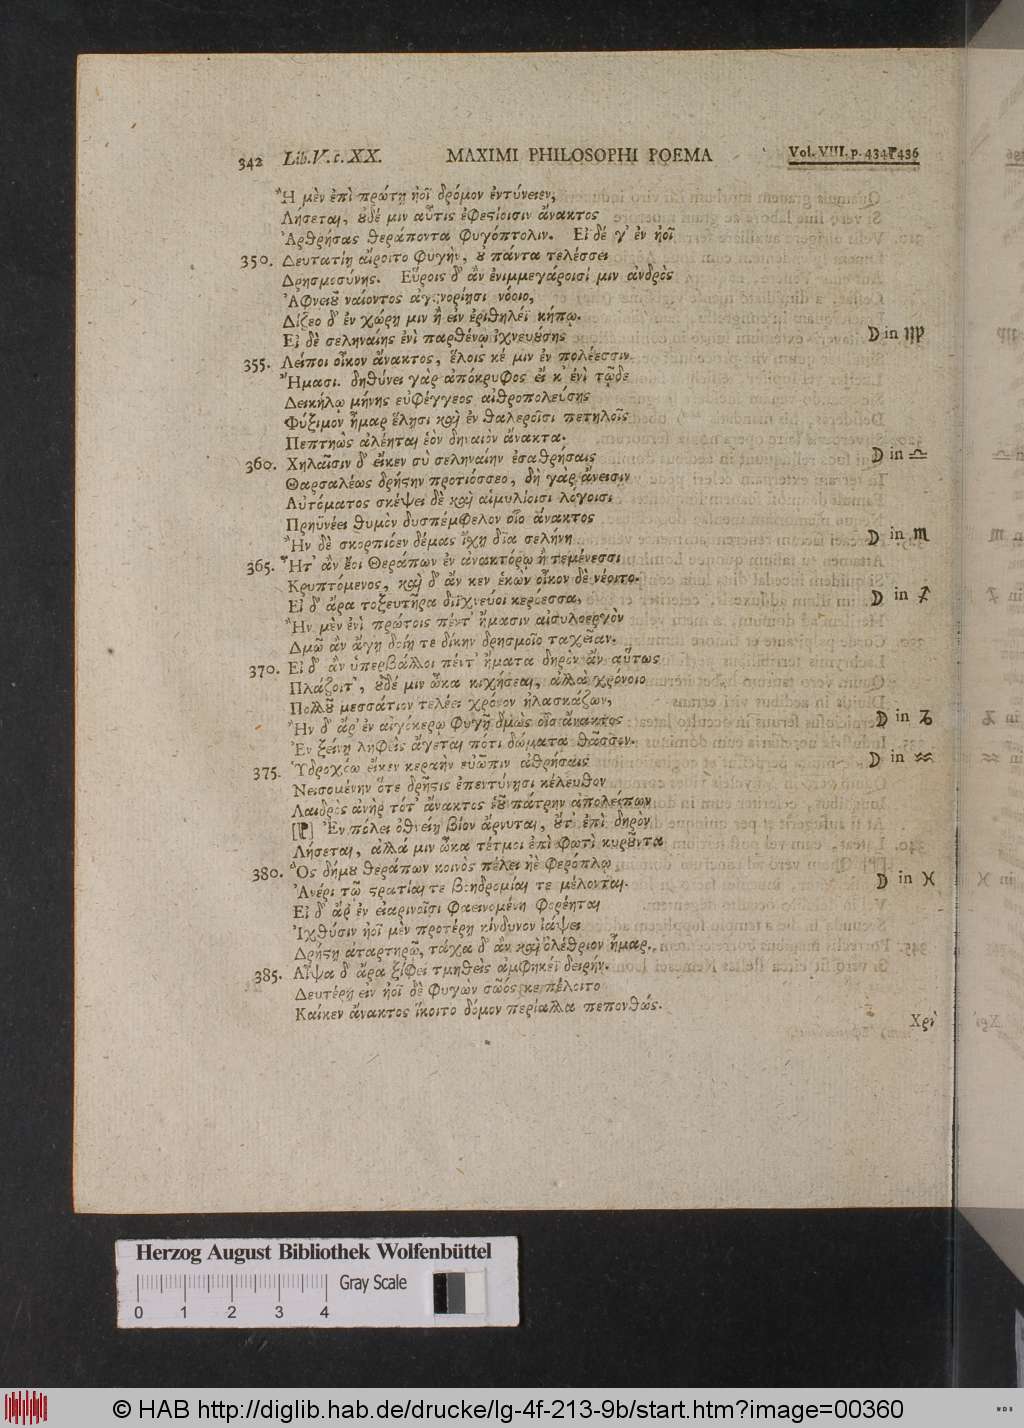 342 Lib. V. c. XX. MAXIMI PHILOSOPHI POEMA Vol. VIII. p. 434 436
Ἢ μὲν ἐπὶ πρώτῃ ἠοῖ δρόμον ἐντύνειεν,
Λήσεται, οὐδέ μιν αὖτις ἐφεστίοισιν ἄνακτος
Ἀρθρήσας θεράποντα φυγόπτολιν. Εἰ δέ γ' ἐν ἠοῖ
350. Δευτατίῃ αἴροιτο φυγὴν, οὐ πάντα τελέσσει
Δρησμοσύνης. Εὕροις δ' ἂν ἐνιμμεγάροισί μιν ἀνδρὸς
Ἀφνειοῦ ναίοντος ἀγηνορίῃσι νόοιο,
Δίζεο δ' ἐν χώρῃ μιν ἢ εἰν ἐριθηλέϊ κήπῳ.
Εἰ δὲ σεληναίης ἐνὶ παρθένῳ ἰχνευούσης ☽ in ♍
355. Λείποι οἶκον ἄνακτος, ἕλοις κέ μιν ἐν πολέεσσιν
Ἤμασι. δηθύνει γὰρ ἀπόκρυφος εἴ κ' ἐνὶ τῷδε
Δεικήλῳ μήνης εὐφέγγεος αἰθροπολεύσης
Φύξιμον ἦμαρ ἕλῃσι καὶ ἐν θαλεροῖσι πετήλοις
Πεπτηὼς ἀλέηται ἑὸν δηναιὸν ἄνακτα.
360. Χηλαῖσιν δ' εἴκεν σὺ σεληναίην ἐσαθρήσαις ☽ in ♎
Θαρσαλέως δρήστην προτιόσσεο, δὴ γὰρ ἄνεισιν
Αὐτόματος σκέψει δὲ καὶ αἱμυλίοισι λόγοισι
Πρηϋνέει θυμὸν δυσπέμφελον οἷο ἄνακτος
Ἢν δὲ σκορπιόεν δέμας ἴχῃ δῖα σελήνη ☽ in ♏
365. Ἦτ' ἂν ἔοι θεράπων ἐν ἀνακτόρῳ ἢ τεμένεσσι
Κρυπτόμενος, καὶ δ' ἄν κεν ἑκὼν οἶκον δὲ νέοιτο.
Εἰ δ' ἄρα τοξευτῆρα διϊχνεύοι κερόεσσα, ☽ in ♐
Ἢν μὲν ἐνὶ πρώτοις πέντ' ἤμασιν αἰσυλοεργὸν
Δμῶ ἂν ἄγῃ δοίη τε δίκην δρησμοῖο ταχεῖαν.
370. Εἰ δ' ἂν ὑπερβάλλοι πέντ' ἤματα δηρὸν ἂν αὔτως
Πλάζοιτ', οὐδέ μιν ὦκα κιχήσεαι, ἀλλὰ χρόνοιο
Πολλοῦ μεσσάτιον τελέει χρόνον ἠλασκάζων,
Ἢν δ' ἄρ' ἐν αἰγόκερῳ φυγῇ δμὼς οἷο ἄνακτος ☽ in ♑
Ἐν ξείνῃ ληφθεὶς ἄγεται πότι δώματα θᾶσσον.
375. Ὑδροχόῳ εἴκεν κεραὴν εὐῶπιν ἀθρήσαις ☽ in ♒
Νεισομένην ὅτε δρῆστις ἐπεντύνησι κέλευθον
Λαιδρὸς ἀνὴρ τότ' ἄνακτος ἑοῦ πάτρην ἀπολείπων
[P] Ἐν πόλει ὀθνείῃ βίον ἄρνυται, οὔτ' ἐπὶ δηρὸν
Λήσεται, ἀλλά μιν ὦκα τέτμοι ἐπὶ φωτὶ κυροῦντα
380. Ὃς δήμου θεράπων κοινὸς πέλει ἠὲ φερόπλῳ
Ἀνέρι τῷ στρατίαι τε βοηδρομίαι τε μέλονται. ☽ in ♓
Εἰ δ' ἄρ' ἐν εἰαρινοῖσι φαεινομένη φορέηται
Ἰχθύσιν ἠοῖ μὲν προτέρῃ κίνδυνον ἰάψει
Δρήστῃ ἀταρτηρῷ, τάχα δ' ἂν καὶ ὀλέθριον ἦμαρ,
385. Αἶψα δ' ἄρα ξίφει τμηθεὶς ἀμφηκέϊ δειρήν.
Δευτέρῃ εἰν ἠοῖ δὲ φυγὼν σῶός κε πέλοιτο
Καίκεν ἄνακτος ἵκοιτο δόμον περίαλλα πεπονθώς.
Χρὶ
Herzog August Bibliothek Wolfenbüttel
Gray Scale
0 1 2 3 4
© HAB http://diglib.hab.de/drucke/lg-4f-213-9b/start.htm?image=00360